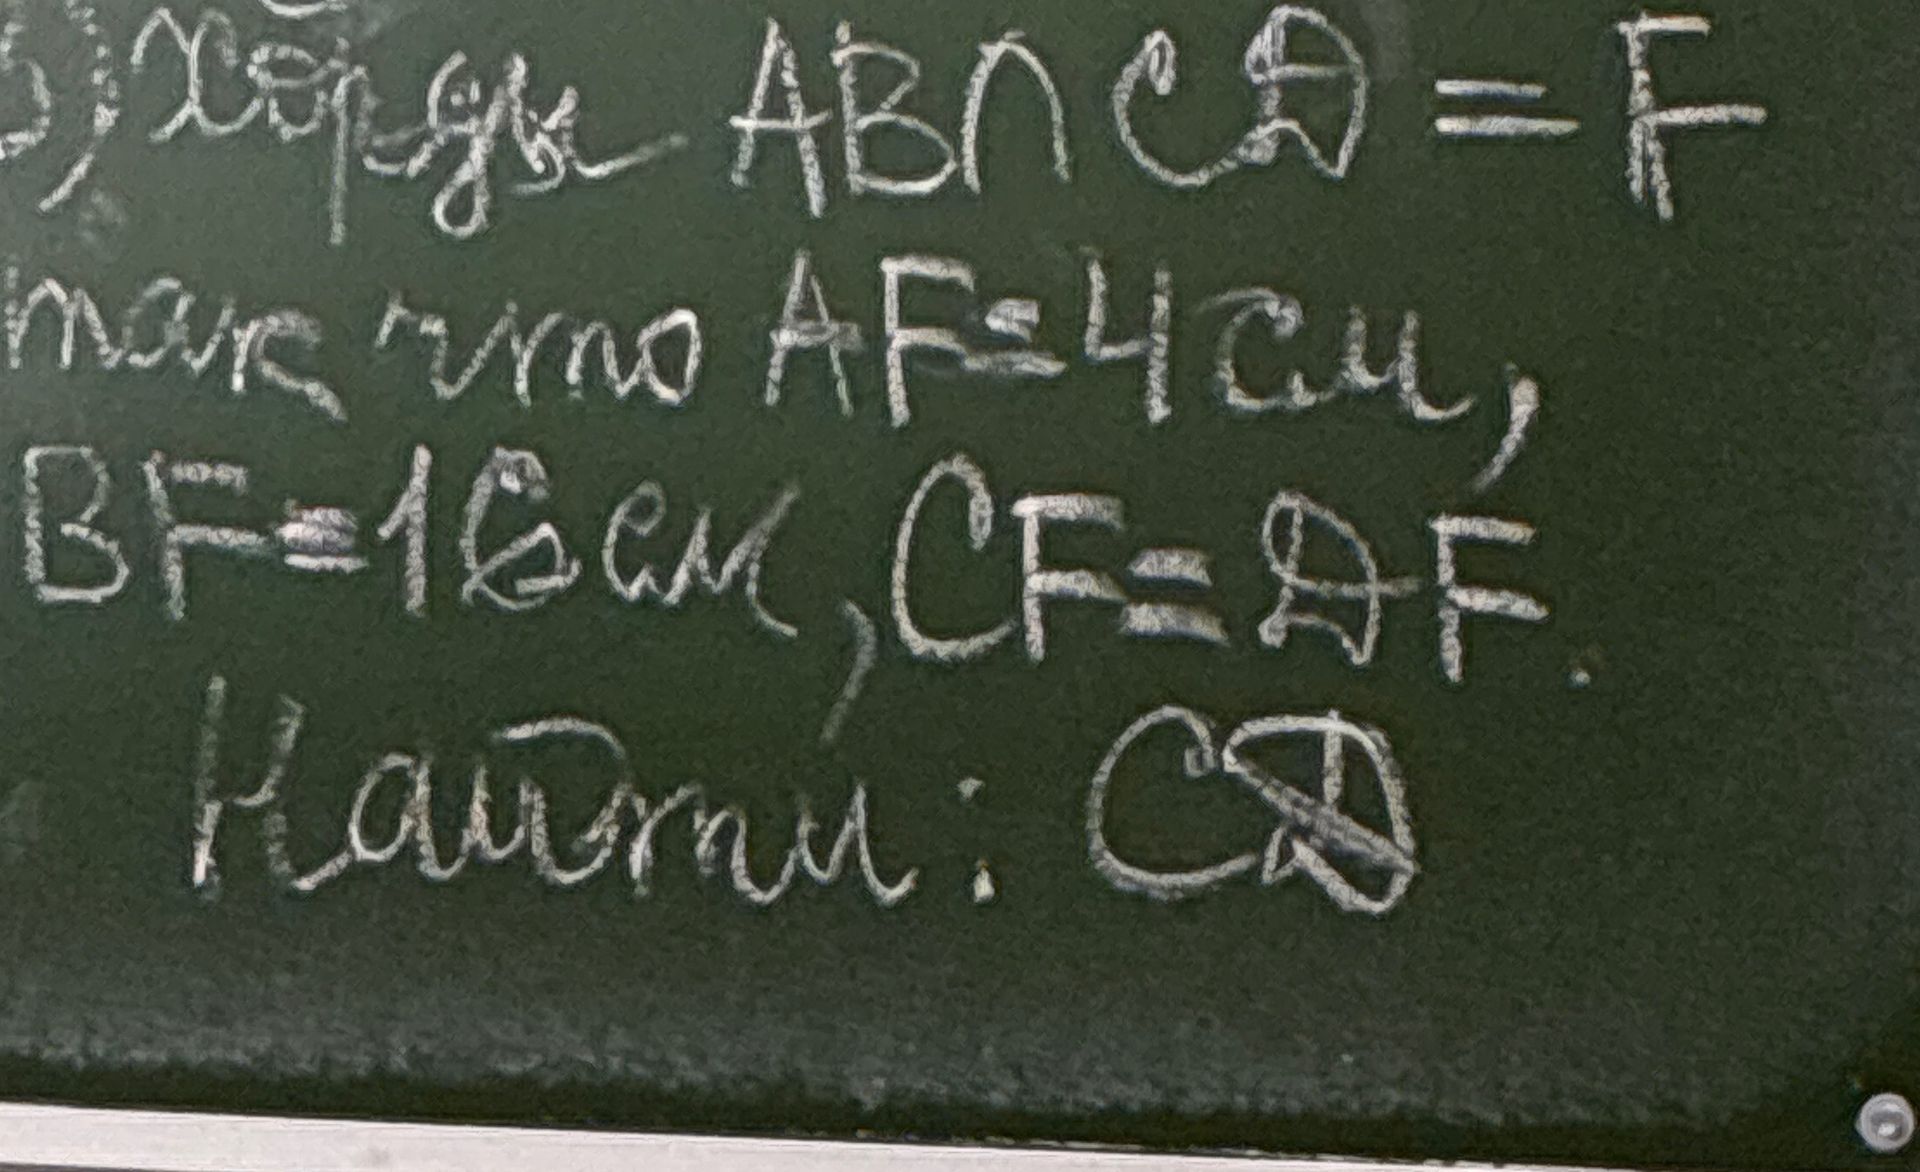 б) Хорды AB∩CD = F
так что AF=4 см,
BF=16 см, CF=DF.
Найти: CD